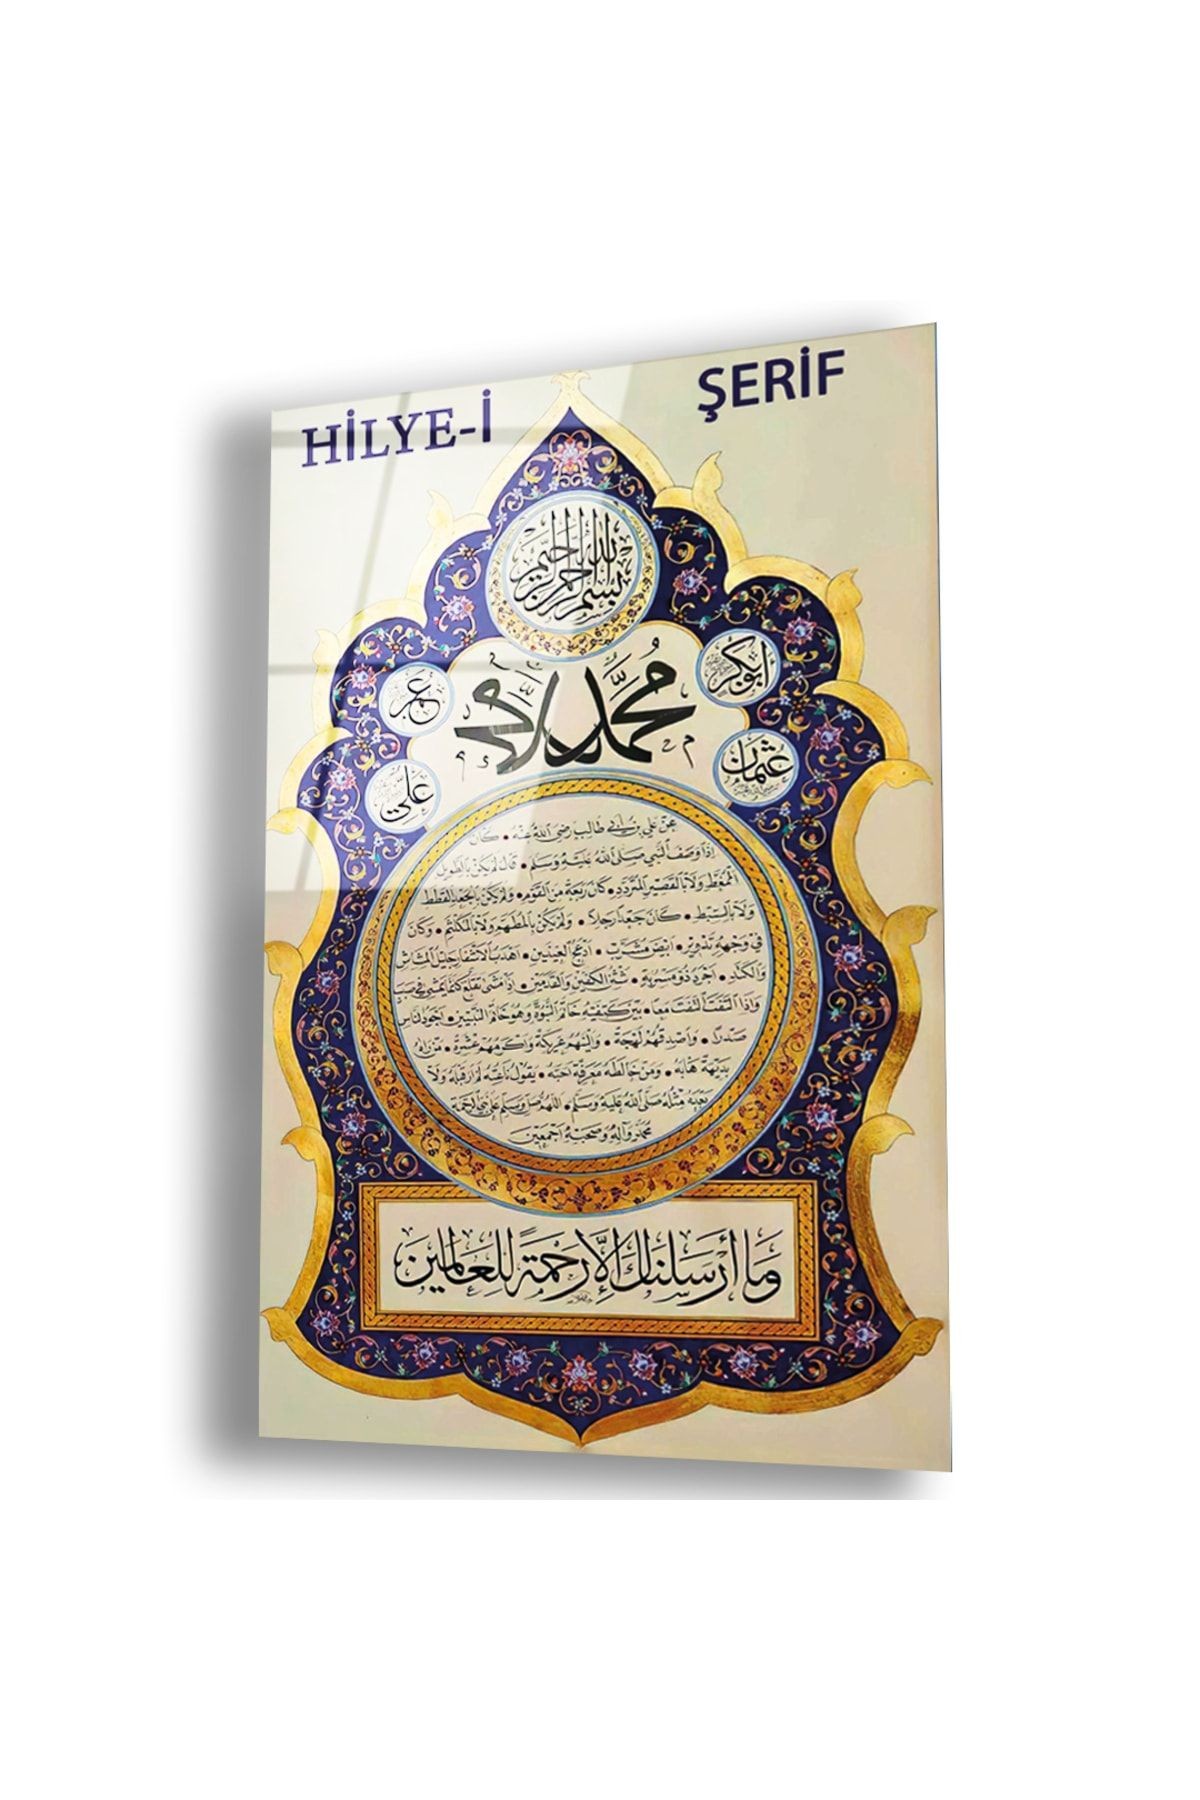 HİLYE-İ ŞERİF
بسم الله الرحمن الرحيم
ابوبكر
عمر
محمد
عثمان
علي
عن علي بن ابي طالب رضى الله عنه • كان
اذا وصف النبي صلى الله عليه وسلم • قال لم يكن بالطويل
الممغط ولا بالقصير المتردد • كان ربعة من القوم • ولم يكن بالجعد القطط
ولا بالسبط • كان جعدا رجلا • ولم يكن بالمطهم ولا بالمكلثم • وكان
في وجهه تدوير • ابيض مشرب • ادعج العينين • اهدب الاشفار جليل المشاش
والكتد • اجرد ذو مسربة • شثن الكفين والقدمين • اذا مشى تقلع كانما يمشي في صبب
واذا التفت التفت معا • بين كتفيه خاتم النبوة وهو خاتم النبيين • اجود الناس
صدرا • واصدقهم لهجة • والينهم عريكة واكرمهم عشرة • من راه
بديهة هابه • ومن خالطه معرفة احبه • يقول ناعته لم ار قبله ولا
بعده مثله صلى الله عليه وسلم • اللهم صل وسلم على نبي الرحمة
محمد وآله وصحبه اجمعين
وما أرسلناك إلا رحمة للعالمين